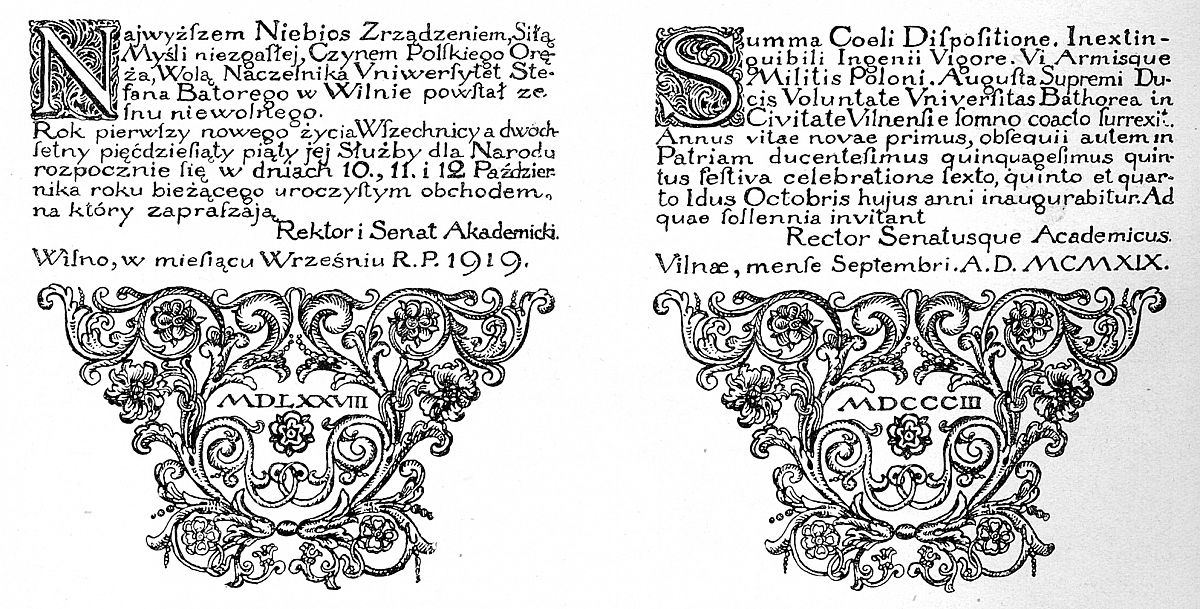 Najwyższem Niebios Zrządzeniem, Siłą
Myśli niezgasłej, Czynem Polskiego Orę-
ża, Wolą Naczelnika Vniwersytet Ste-
fana Batorego w Wilnie powstał ze
snu niewolnego.
Rok pierwszy nowego życia Wszechnicy a dwóch-
setny pięćdziesiąty piąty jej Służby dla Narodu
rozpocznie się w dniach 10., 11. i 12 Paździer-
nika roku bieżącego uroczystym obchodem,
na który zapraszają
Rektor i Senat Akademicki.
Wilno, w miesiącu Wrześniu R. P. 1919.
MDLXXVIII
Summa Coeli Dispoſitione. Inextin-
guibili Ingenii Vigore. Vi Armisque
Militis Poloni. Auguſta Supremi Du-
cis Voluntate Vniverſitas Bathorea in
Civitate Vilnenſi e ſomno coacto ſurrexit.
Annus vitae novae primus, obſequii autem in
Patriam ducenteſimus quinquageſimus quin-
tus feſtiva celebratione ſexto, quinto et quar-
to Idus Octobris hujus anni inaugurabitur. Ad
quae ſollennia invitant
Rector Senatusque Academicus.
Vilnæ, menſe Septembri. A. D. MCMXIX.
MDCCCIII